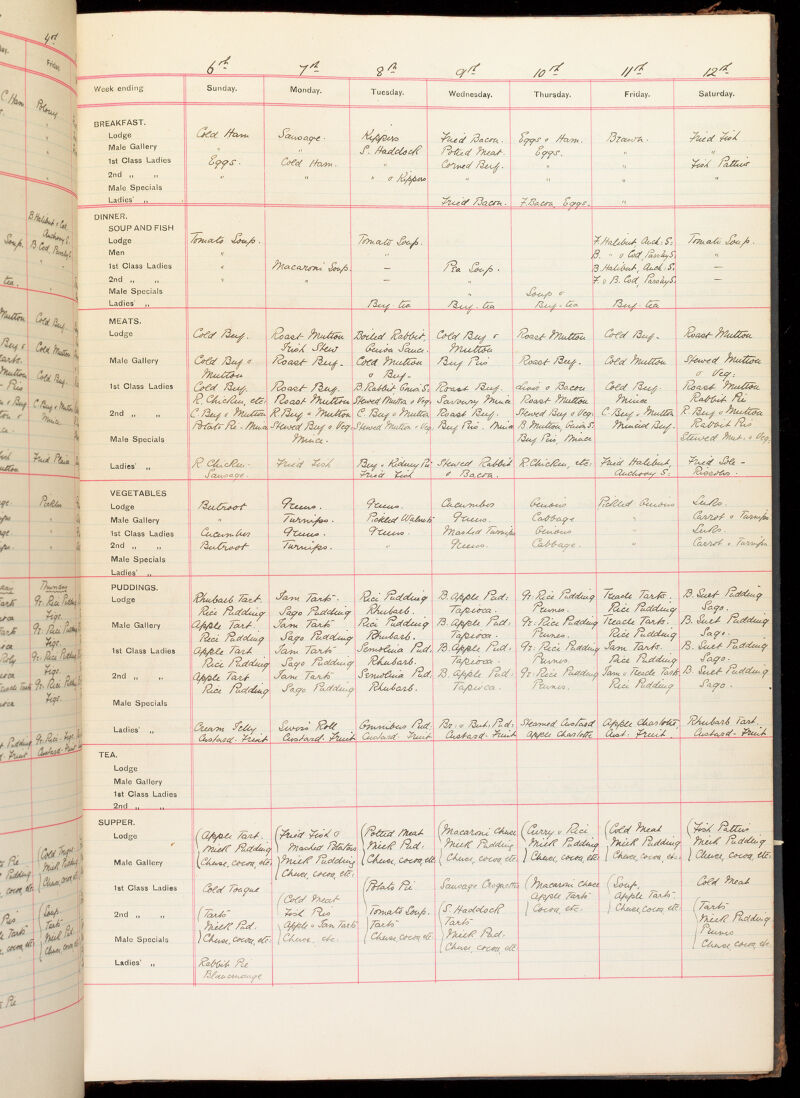 6th 7th 8th 9th 10th 11th 12th
Week ending Sunday. Monday. Tuesday. Wednesday. Thursday. Friday. Saturday.
BREAKFAST.
Lodge Cold Ham Sausage. Kippers Fried Bacon. Eggs & Ham. Brawn. Fried Fish
Male Gallery " " S. Haddock Potted Meat. Eggs. " "
1st Class Ladies Eggs. Cold Ham. " Corned Beef. " " Fish Patties
2nd " " " " " & Kippers " " " "
Male Specials
Ladies' " Fried Bacon. F. Bacon, Eggs. "
DINNER.
SOUP AND FISH
Lodge Tomato Soup. Tomato Soup. F. Halibut, Anch: S. Tomato Soup.
Men " " B. " & Cod, Parsley S. "
1st Class Ladies " Macaroni Soup. – Pea Soup. B. Halibut, Anch. S. –
2nd " " " " – " F. & B. Cod, Parsley S. –
Male Specials " Soup &
Ladies' " Beef tea Beef tea Beef tea Beef tea
MEATS.
Lodge Cold Beef. Roast Mutton Boiled Rabbit, Cold Beef & Roast Mutton Cold Beef. Roast Mutton
Irish Stew Onion Sauce. Mutton
Male Gallery Cold Beef & Roast Beef. Cold Mutton Beef Pies Roast Beef. Cold Mutton Stewed Mutton
Mutton & Beef. & Veg.
1st Class Ladies Cold Beef. Roast Beef. B. Rabbit Onion S. Roast Beef. Liver & Bacon Cold Beef. Roast Mutton
R. Chicken, etc. Roast Mutton Stewed Mutton & Veg. Savoury Mince Roast Mutton Mince Rabbit Pie
2nd " " C. Beef & Mutton R. Beef & Mutton C. Beef & Mutton Roast Beef. Stewed Beef & Veg. C. Beef & Mutton R. Beef & Mutton
Potato Pie. Mince Stewed Beef & Veg. Stewed Mutton & Veg. Beef Pies. Mince B. Mutton, Onion S. Minced Beef. Rabbit Pies
Male Specials Mince. Beef Pies, Mince Stewed Mut. & Veg.
Ladies' " R. Chicken. Fried Fish Beef & Kidney Pie Stewed Rabbit R. Chicken, etc. Fried Halibut, Fried Sole –
Sausage. Fried Fish & Bacon. Anchovy S. Rissoles.
VEGETABLES
Lodge Beetroot Greens. Greens. Cucumbers Onions Pickled Onions Leeks.
Male Gallery " Turnips. Pickled Walnuts Greens. Cabbage " Carrot & Turnips
1st Class Ladies Cucumbers Greens. Greens. Mashed Turnips Onions " Leeks.
2nd " " Beetroot Turnips. " Greens. Cabbage. " Carrot & Turnips
Male Specials
Ladies' "
PUDDINGS.
Lodge Rhubarb Tart. Jam Tarts. Rice Pudding B. Apple Pud: Gr. Rice Pudding Treacle Tarts. B. Suet Pudding
Rice Pudding Sago Pudding Rhubarb. Tapioca. Prunes. Rice Pudding Sago.
Male Gallery Apple Tart. Jam Tarts Rice Pudding B. Apple Pud: Gr. Rice Pudding Treacle Tarts. B. Suet Pudding
Rice Pudding Sago Pudding Rhubarb. Tapioca. Prunes. Rice Pudding Sago.
1st Class Ladies Apple Tart Jam Tarts Semolina Pud. B. Apple Pud: Gr. Rice Pudding Jam Tarts. B. Suet Pudding
Rice Pudding Sago Pudding Rhubarb. Tapioca. Prunes Rice Pudding Sago.
2nd " " Apple Tart Jam Tarts Semolina Pud. B. Apple Pud: Gr. Rice Pudding Jam & Treacle Tarts. B. Suet Pudding
Rice Pudding Sago Pudding Rhubarb. Tapioca. Prunes. Rice Pudding Sago.
Male Specials
Ladies' " Cream Jelly Swiss Roll Omnibus Pud. Br. & But. Pud: Steamed Custard Apple Charlotte, Rhubarb Tart.
Custard. Fruit Custard. Fruit Custard. Fruit Custard. Fruit Apple Charlotte Cust: Fruit Custard. Fruit
TEA.
Lodge
Male Gallery
1st Class Ladies
2nd " "
SUPPER.
Lodge Apple Tart. Fried Fish & Potted Meat Macaroni Cheese Curry & Rice Cold Meat Fish Patties
Milk Pudding Mashed Potatoes Milk Pud: Milk Pudding Milk Pudding Milk Pudding Milk Pudding
Male Gallery Cheese, cocoa, etc. Milk Pudding Cheese, cocoa, etc Cheese, cocoa, etc. Cheese, cocoa, etc Cheese, cocoa, etc. Cheese, cocoa, etc.
Cheese, cocoa, etc.
1st Class Ladies Cold Tongue Cold Meat Potato Pie Sausage Croquettes Macaroni Cheese Soup, Cold Meat
Apple Tarts Apple Tarts
2nd " " Tarts Fish Pies Tomato Soup. S. Haddock Cocoa, etc. Cheese, Cocoa, etc Tarts
Milk Pud. Apple & Jam Tarts Tarts Tarts Milk Pudding
Male Specials Cheese, cocoa, etc. Cheese, etc. Cheese, cocoa, etc. Milk Pud. Prunes
Cheese, cocoa, etc Cheese, cocoa, etc
Ladies' " Rabbit Pie
Blancmange